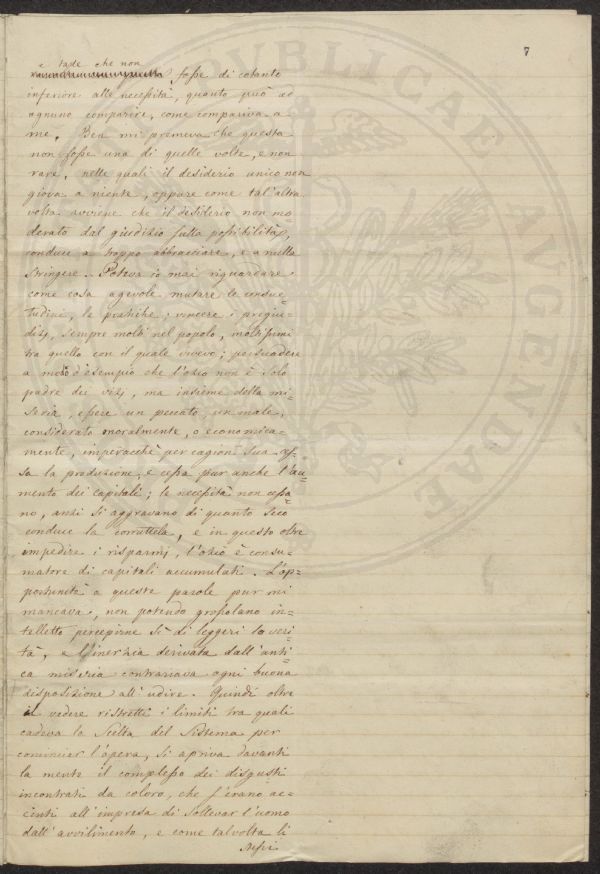 7
e tale che non
fosse di cotanto
inferiore alle necessità, quanto può ad
ognuno comparire, come compariva a
me. Ben mi premeva che questa
non fosse una di quelle volte, e non
rare, nelle quali il desiderio unico non
giova a niente, oppure come tal'altra
volta avviene che il desiderio non mo
derato dal giudizio sulla possibilità,
conduce a troppo abbracciare, e a nulla
stringere. Poteva io mai riguardare
come cosa agevole mutare le consue=
tudini, le pratiche; vincere i pregiu=
dizj, sempre molti nel popolo, moltissimi
tra quello con il quale vivevo; persuadere
a modo d'esempio che l'ozio non è solo
padre dei vizj, ma insieme della mi=
seria, essere un peccato, un male,
considerato moralmente, o economica=
mente, imperocchè per cagion sua ces=
sa la produzione, e cessa pur anche l'au=
mento dei capitali; le necessità non cessa=
no, anzi si aggravano di quanto seco
conduce la corruttela, e in questo oltre
impedire i risparmj, l'ozio è consu=
matore di capitali accumulati. L'op=
portunità a queste parole pur mi
mancava, non potendo grossolano in=
telletto percepirne sì di leggeri la veri=
tà, e l'inerzia derivata dall'anti=
ca miseria contrariava ogni buona
disposizione all'udire. Quindi oltre
al vedere ristretti i limiti tra quali
cadeva la scelta del sistema per
cominciar l'opera, si apriva davanti
la mente il complesso dei disgusti
incontrati da coloro, che s'erano ac=
cinti all'impresa di sollevar l'uomo
dall'avvilimento, e come talvolta li
PUBLICAE
AUGENDAE